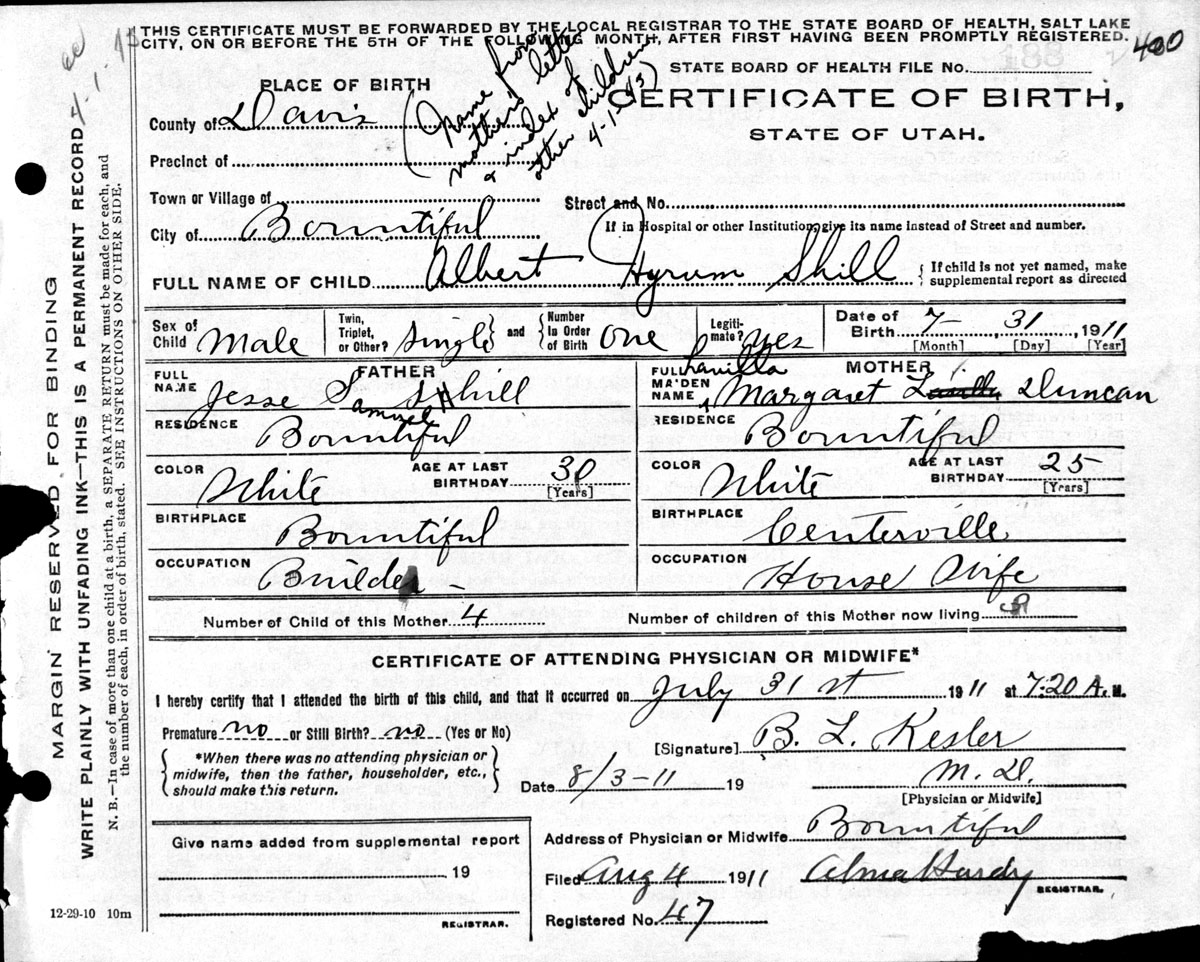 THIS CERTIFICATE MUST BE FORWARDED BY THE LOCAL REGISTRAR TO THE STATE BOARD OF HEALTH, SALT LAKE
CITY, ON OR BEFORE THE 5TH OF THE FOLLOWING MONTH, AFTER FIRST HAVING BEEN PROMPTLY REGISTERED.
400
4-1-43
(Name from
mothers letter
& index of
other children
4-1-43)
STATE BOARD OF HEALTH FILE No.
188
PLACE OF BIRTH
CERTIFICATE OF BIRTH,
STATE OF UTAH.
County of Davis
Precinct of
Town or Village of
Street and No.
City of Bountiful
If in Hospital or other Institution, give its name instead of Street and number.
FULL NAME OF CHILD Albert Hyrum Shill
{ If child is not yet named, make
supplemental report as directed
Sex of Child Male
Twin, Triplet, or Other? Single and Number In Order of Birth one
Legitimate? yes
Date of Birth 7- 31, 1911
[Month] [Day] [Year]
FATHER
FULL NAME Jesse Samuel Shill
RESIDENCE Bountiful
COLOR White AGE AT LAST BIRTHDAY 30
[Years]
BIRTHPLACE Bountiful
OCCUPATION Builder -
MOTHER
FULL MAIDEN NAME Margaret Duncan
RESIDENCE Bountiful
COLOR White AGE AT LAST BIRTHDAY 25
[Years]
BIRTHPLACE Centerville
OCCUPATION House Wife
Number of Child of this Mother 4
Number of children of this Mother now living
CERTIFICATE OF ATTENDING PHYSICIAN OR MIDWIFE*
I hereby certify that I attended the birth of this child, and that it occurred on July 31st 1911 at 7:20 A. M.
Premature no or Still Birth? no (Yes or No)
*When there was no attending physician or
midwife, then the father, householder, etc.,
should make this return.
[Signature] B. L. Kesler
Date 8/3-11 19
M.D.
[Physician or Midwife]
Address of Physician or Midwife Bountiful
Give name added from supplemental report
19
REGISTRAR.
Filed Aug 4 1911 Alma Hardy
REGISTRAR.
Registered No. 47
12-29-10 10m
MARGIN RESERVED FOR BINDING
WRITE PLAINLY WITH UNFADING INK—THIS IS A PERMANENT RECORD
N. B.—In case of more than one child at a birth, a SEPARATE RETURN must be made for each, and
the number of each, in order of birth, stated. SEE INSTRUCTIONS ON OTHER SIDE.